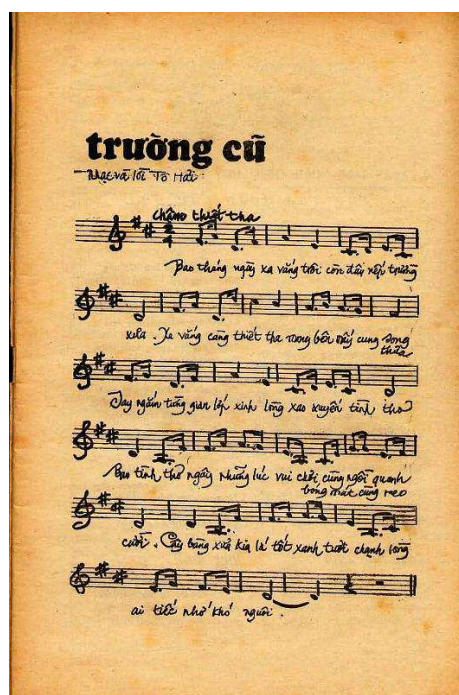 trường cũ
Nhạc và lời Tô Hải
Chậm thiết tha
2 4
Bao tháng ngày xa vắng trôi còn đây mái trường
xưa . Xa vắng càng thiết tha mong bên mấy cung song
thưa
Tay ngắm từng gian lớp xinh lòng xao xuyến tình thơ
Bao tình thơ ngây Những lúc vui chơi cùng ngồi quanh
bóng mát cùng reo
cười . Cây bàng xưa kia lá tốt xanh tươi chạnh lòng
ai tiếc nhớ khó nguôi .